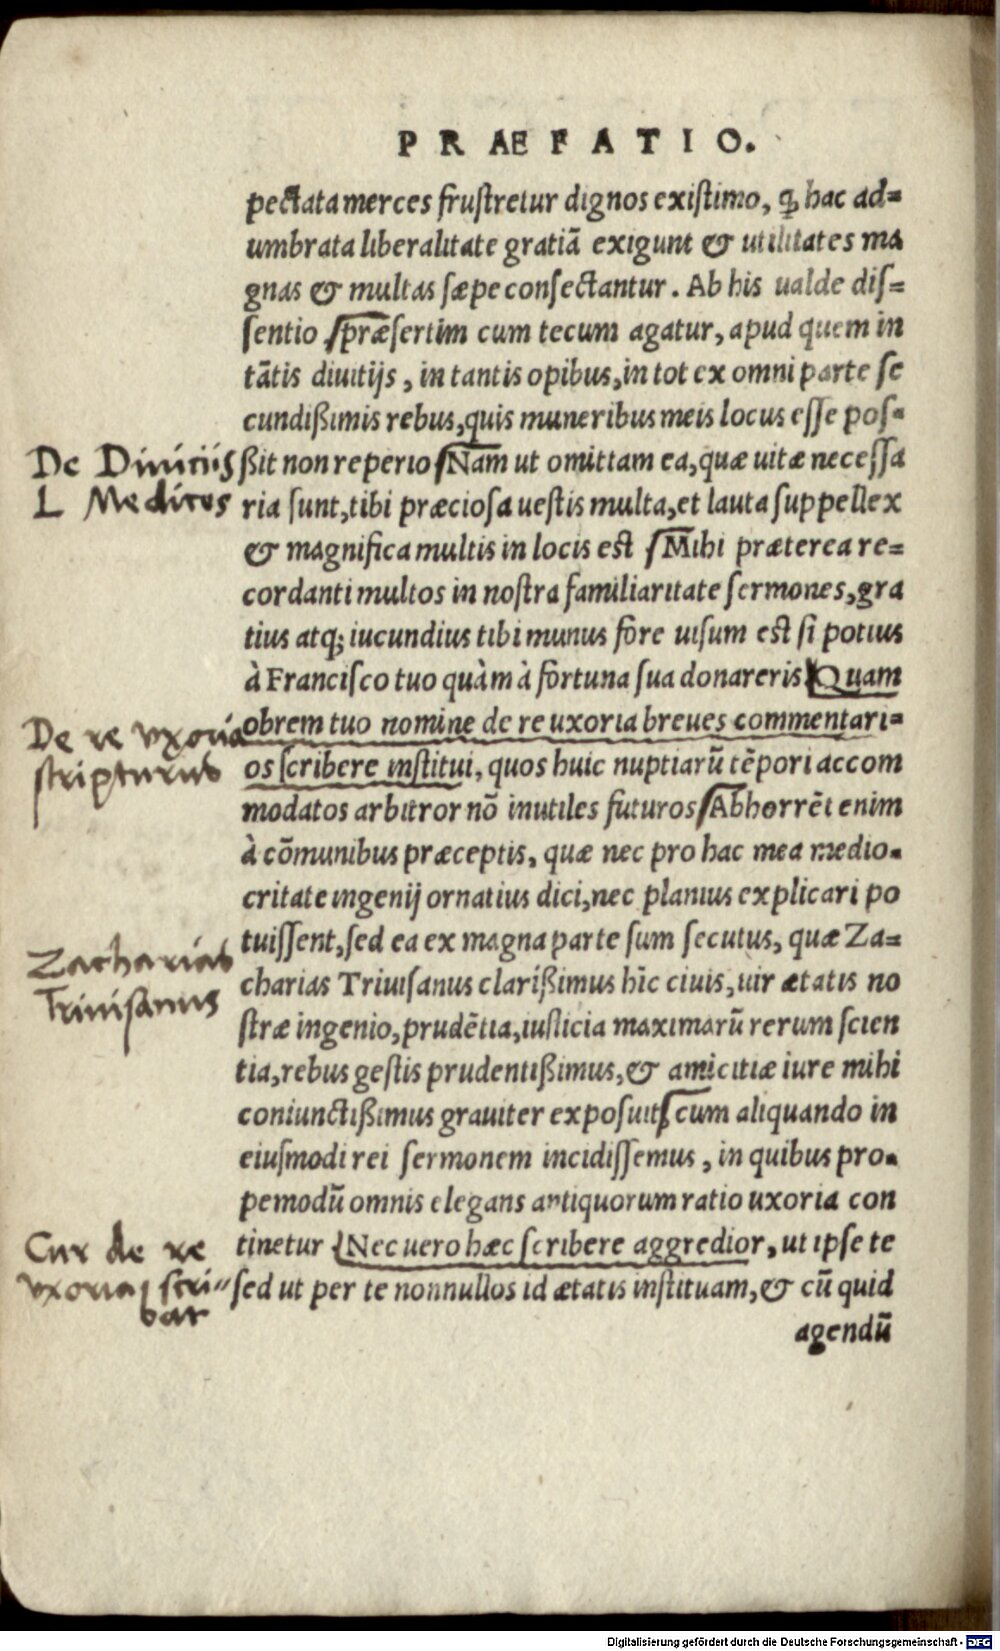 PRÆFATIO.
pectata merces frustretur dignos existimo, ꝙ hac ad=
umbrata liberalitate gratiā exigunt & utilitates ma
gnas & multas sæpe consectantur. Ab his ualde dis=
sentio præsertim cum tecum agatur, apud quem in
tātis diuitijs, in tantis opibus, in tot ex omni parte se
cundißimis rebus, quis muneribus meis locus esse pos=
De Diuitiis
ßit non reperio Nam ut omittam ea, quæ uitæ necessa
L Medices
ria sunt, tibi præciosa uestis multa, et lauta suppellex
& magnifica multis in locis est Mihi præterea re=
cordanti multos in nostra familiaritate sermones, gra
tius atq; iucundius tibi munus fore uisum est si potius
à Francisco tuo quàm à fortuna sua donareris Quam
De re vxoria
obrem tuo nomine de re uxoria breues commentari=
scripturus
os scribere institui, quos huic nuptiarū tēpori accom
modatos arbitror nō inutiles futuros Abhorrēt enim
à cōmunibus præceptis, quæ nec pro hac mea medio=
critate ingenij ornatius dici, nec planius explicari po
Zacharias
tuissent, sed ea ex magna parte sum secutus, quæ Za=
Triuisanus
charias Triuisanus clarißimus hîc ciuis, uir ætatis no
stræ ingenio, prudētia, iusticia maximarū rerum scien
tia, rebus gestis prudentißimus, & amicitiæ iure mihi
coniunctißimus grauiter exposuit cum aliquando in
eiusmodi rei sermonem incidissemus, in quibus pro=
pemodū omnis elegans antiquorum ratio uxoria con
Cur de re
tinetur Nec uero hæc scribere aggredior, ut ipse te
vxoria scri=
sed ut per te nonnullos id ætatis instituam, & cū quid
bat
agendū
Digitalisierung gefördert durch die Deutsche Forschungsgemeinschaft - DFG